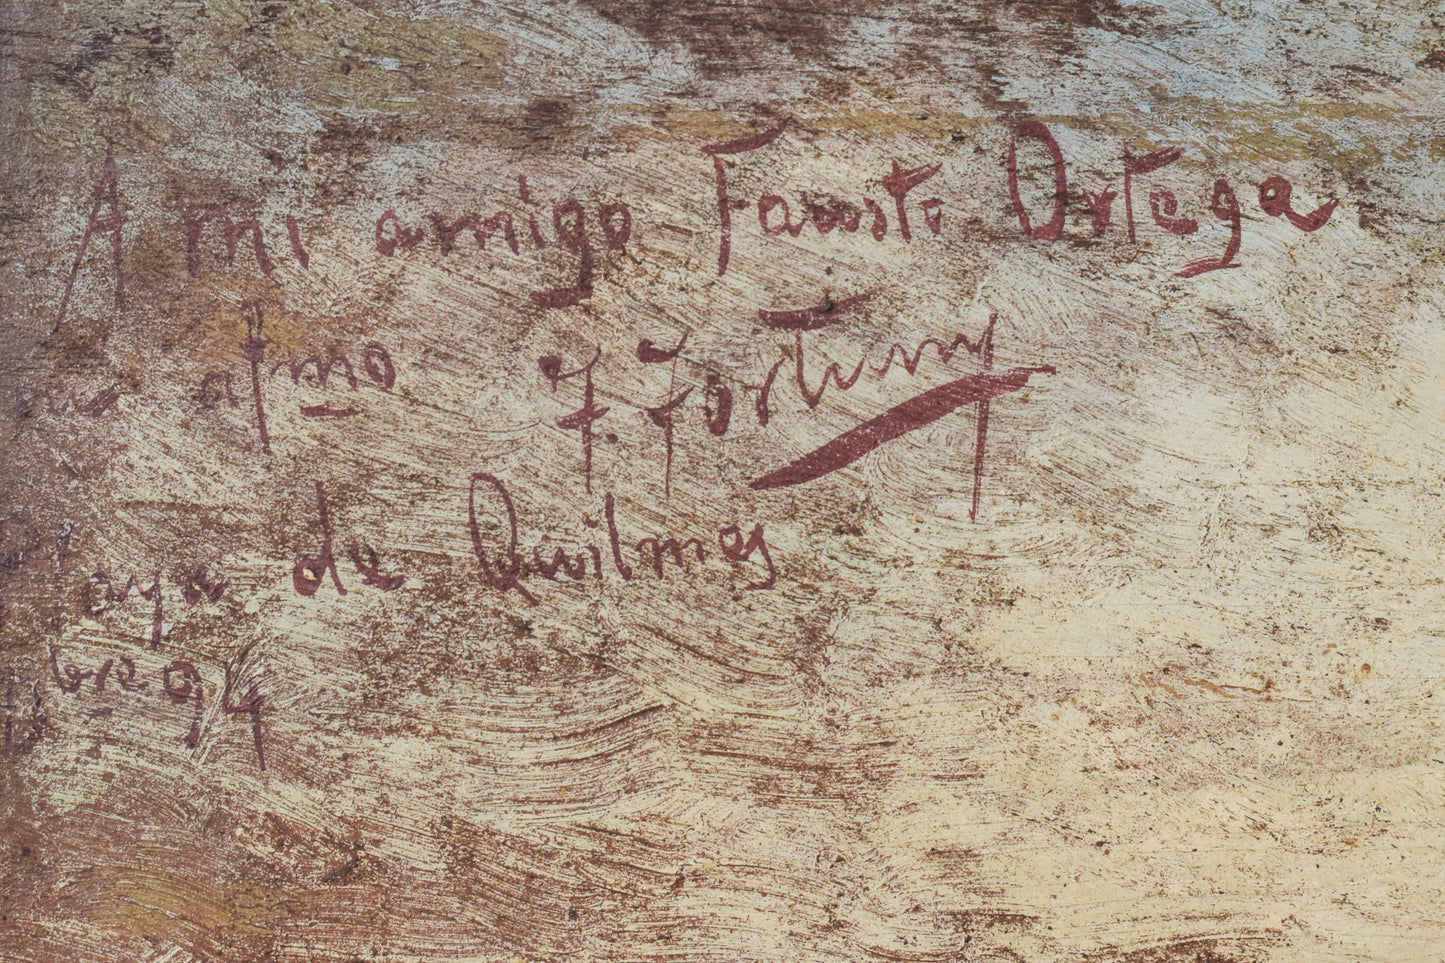 A mi amigo Fausto Ortega
su afmo F. Fortuny
Playa de Quilmes
Bbre 94